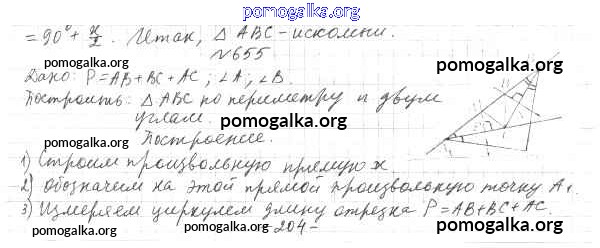 pomogalka.org
= 90° + x/2. Итак, △ABC - искомый.
pomogalka.org
№655
Дано: P=AB+BC+AC; ∠A; ∠B.
pomogalka.org pomogalka.org
Построить: △ABC по периметру и двум
углам.
pomogalka.org
Построение.
1) Строим произвольную прямую x.
pomogalka.org pomogalka.org
2) обозначим на этой прямой произвольную точку A₁.
3) Измеряем циркулем длину отрезка P=AB+BC+AC.
pomogalka.org
-204-